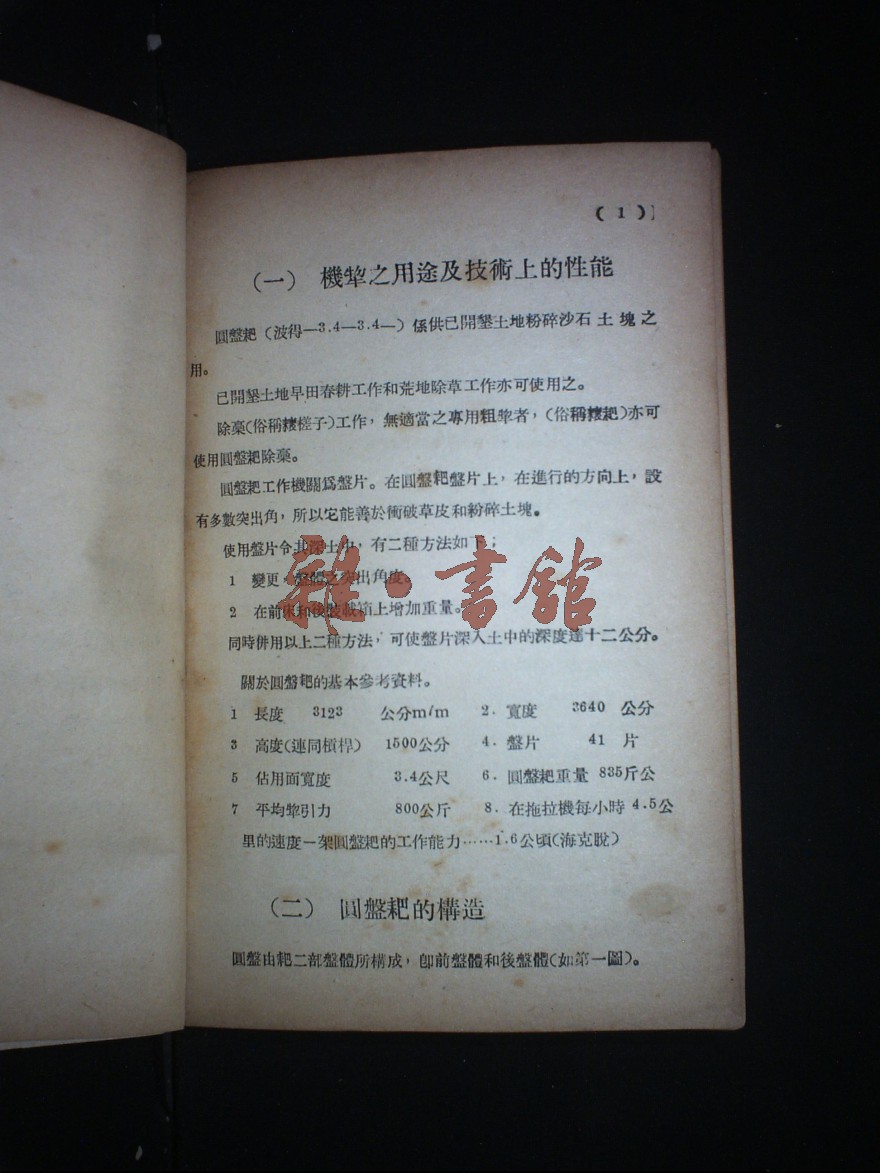 ( 1 )
(一) 機犂之用途及技術上的性能
圓盤耙(波得—3.4—3.4—)係供已開墾土地粉碎沙石土塊之
用。
已開墾土地早田春耕工作和荒地除草工作亦可使用之。
除藁(俗稱𣝊槎子)工作，無適當之專用粗犂者，(俗稱耙)亦可
使用圓盤耙除藁。
圓盤耙工作機關爲盤片。在圓盤耙盤片上，在進行的方向上，設
有多數突出角，所以它能善於衝破草皮和紛碎土塊。
使用盤片令其深土中，有二種方法如下；
1 變更，盤體之突出角度。
2 在前床和後裝載箱上增加重量。
同時併用以上二種方法，可使盤片深入土中的深度達十二公分。
關於圓盤耙的基本參考資料。
1 長度 3123 公分m/m 2. 寬度 3640 公分
3 高度(連同槓桿) 1500公分 4. 盤片 41 片
5 佔用面寬度 3.4公尺 6. 圓盤耙重量 835斤公
7 平均犂引力 800公斤 8. 在拖拉機每小時 4.5公
里的速度一架圓盤耙的工作能力……1.6公頃(海克脫)
(二) 圓盤耙的構造
圓盤由耙二部盤體所構成，卽前盤體和後盤體(如第一圖)。
雜·書館